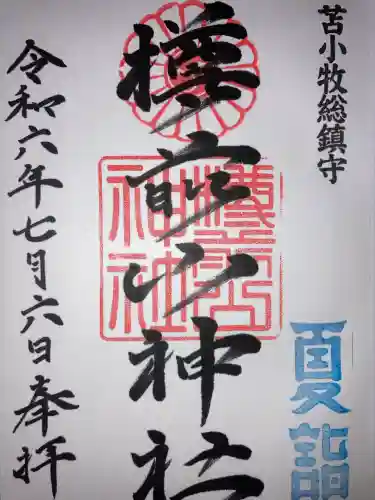 苫小牧総鎮守
夏詣
樽前山神社
樽前山
神社
令和六年七月六日奉拝